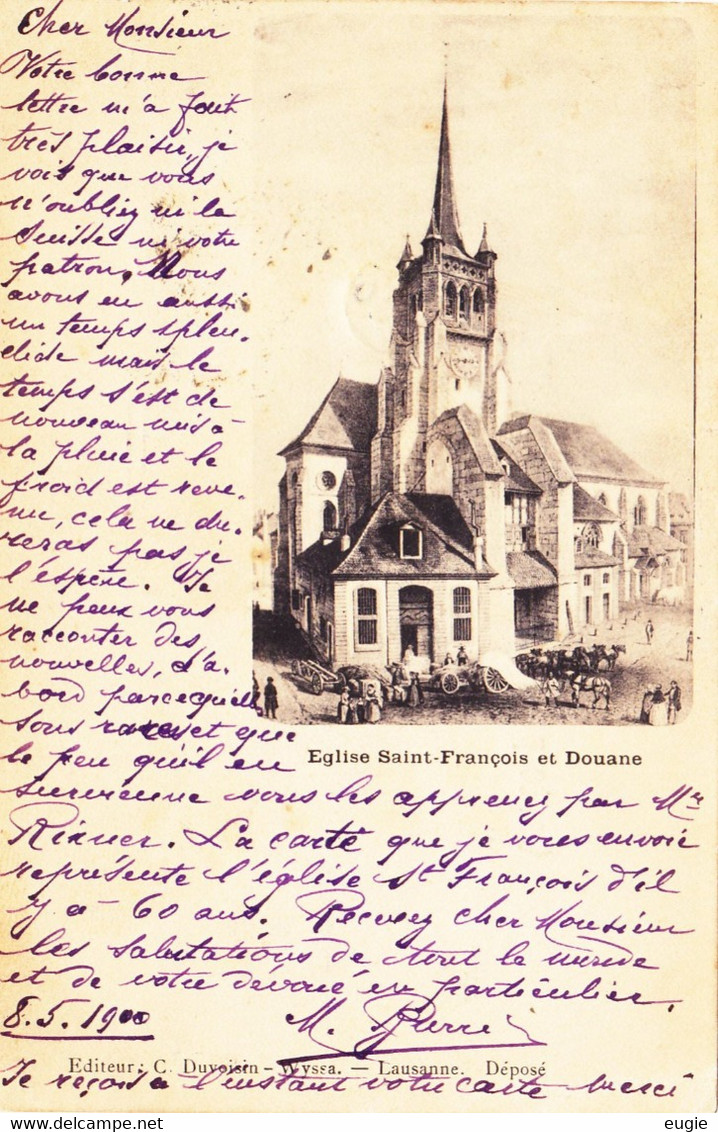 Cher Monsieur
Votre bonne
lettre m'a fait
très plaisir, je
vois que vous
n'oubliez ni la
Suisse ni votre
patron. Nous
avons eu aussi
un temps splen-
dide mais le
temps s'est de
nouveau mis à
la pluie et le
froid est reve-
nu, cela ne du-
reras pas je
l'espère. Je
ne peux vous
raconter des
nouvelles, d'a-
bord parcequ'elles
sous rares et que
le peu qu'il en
Eglise Saint-François et Douane
survienne vous les apprenez par Mr
Rixner. La carte que je vous envoie
représente l'église St François d'il
y a 60 ans. Recevez cher Monsieur
les salutations de tout le monde
et de votre dévoué en particulier.
8.5.1900 M.
Editeur: C. Duvoisin-Wyssa. — Lausanne. Déposé
Je reçois à l'instant votre carte merci
eugie